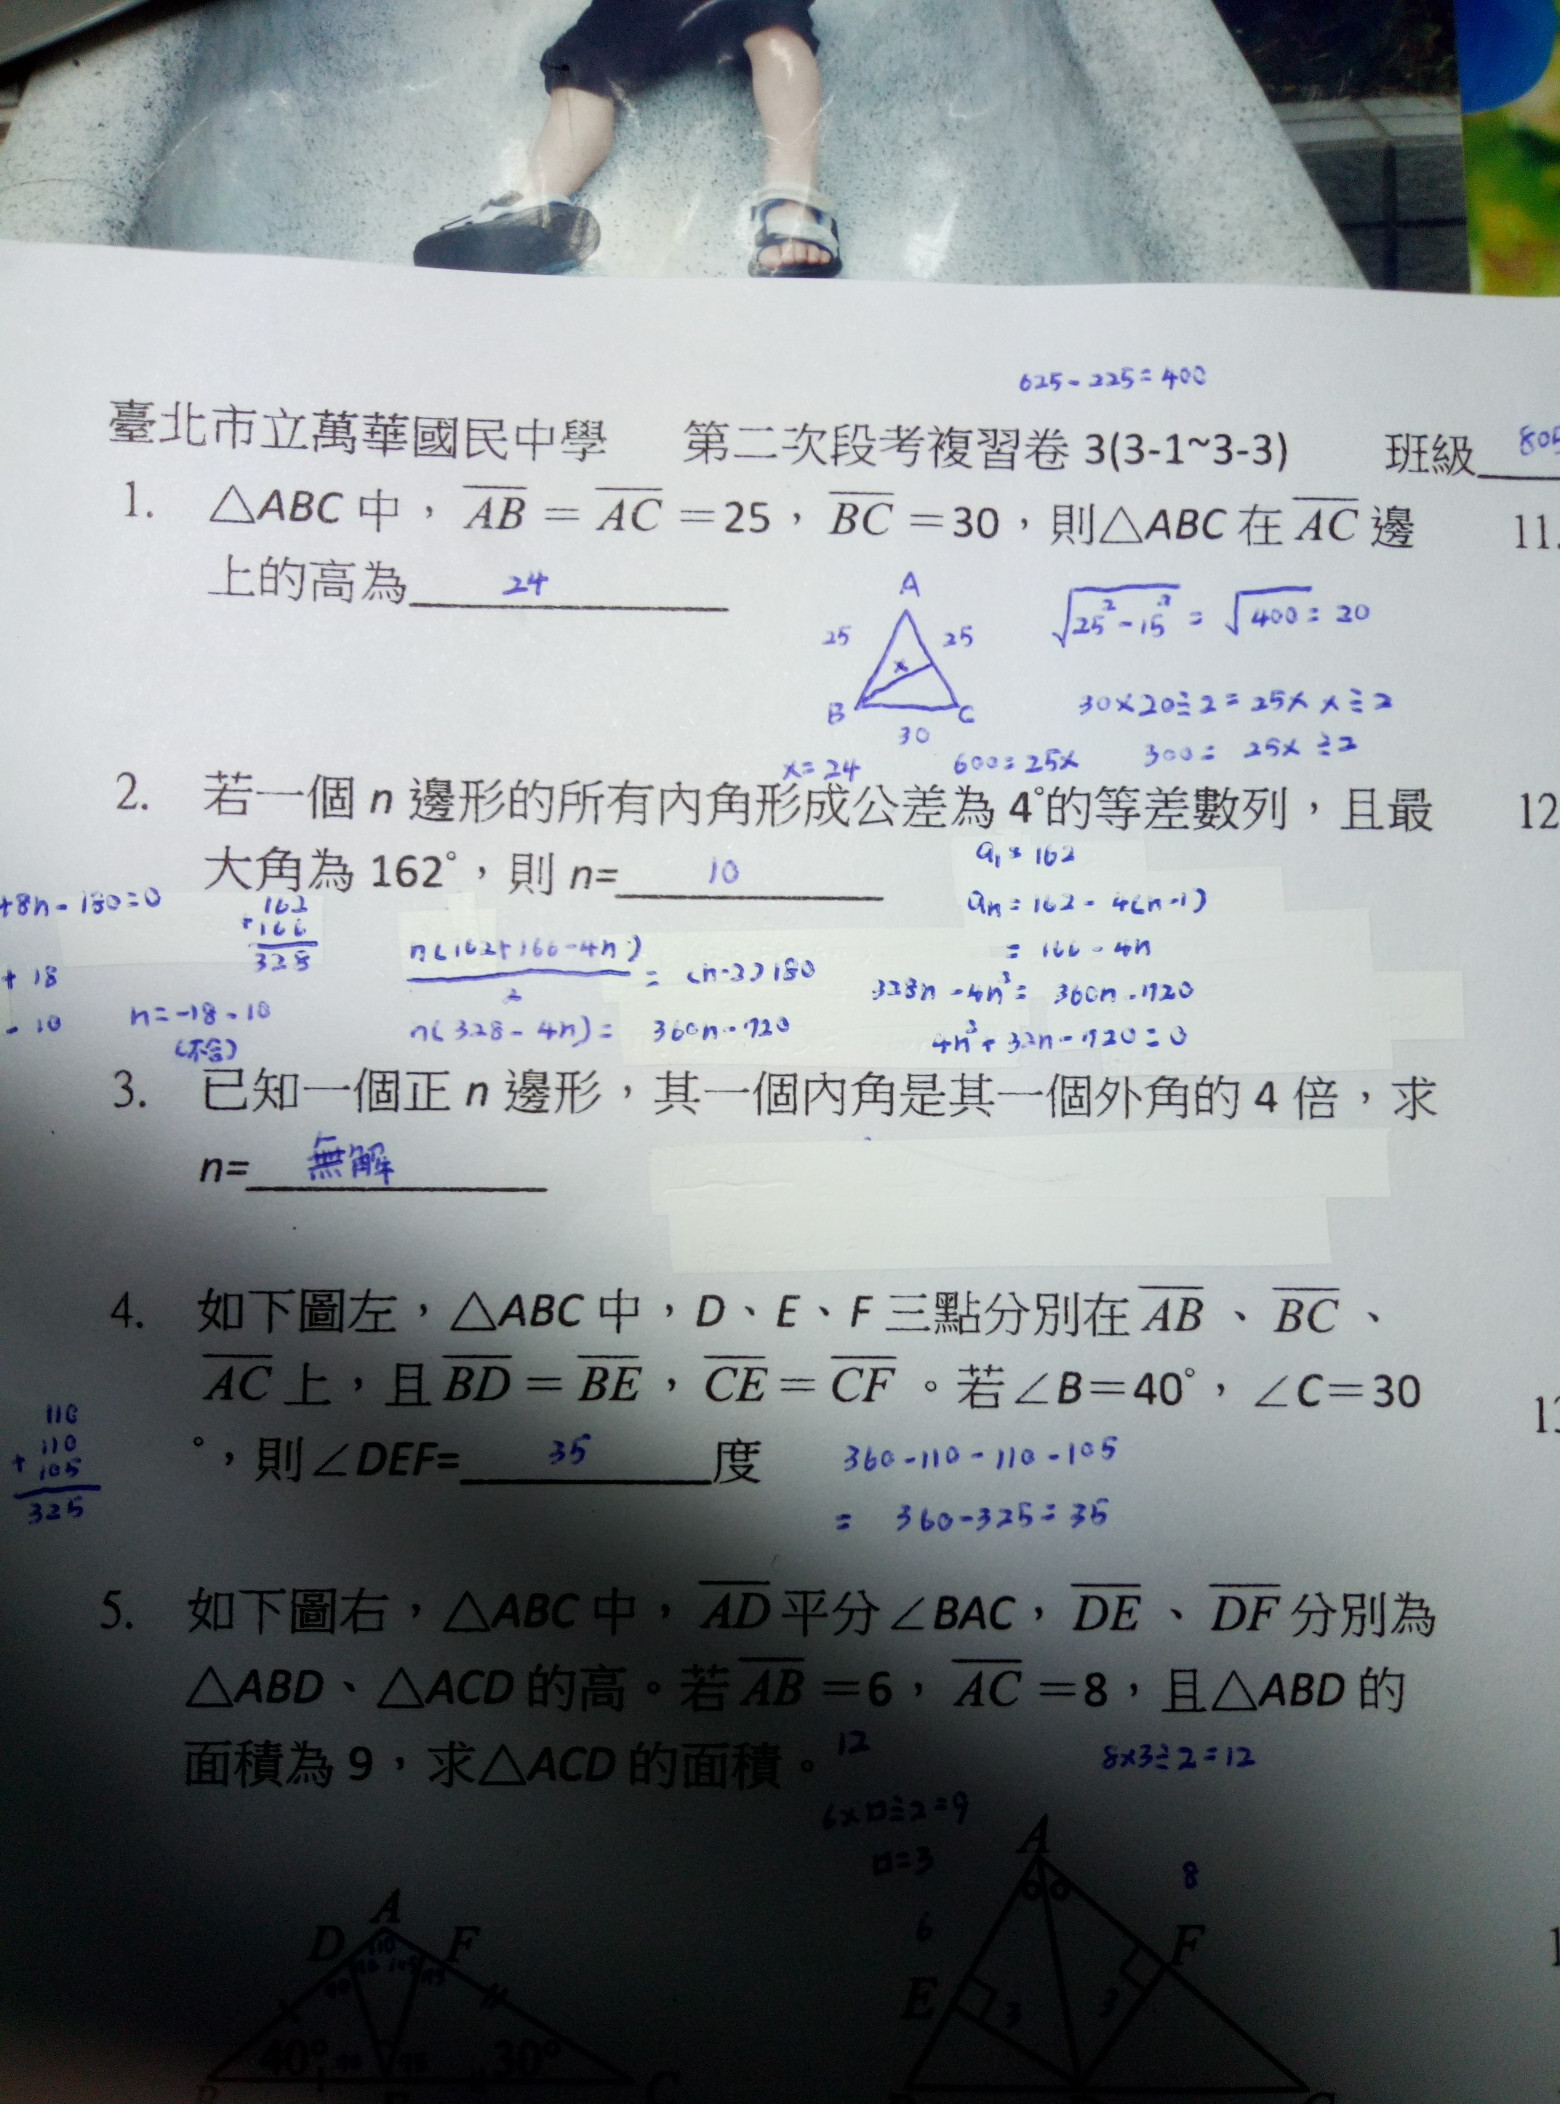 625-225=400
臺北市立萬華國民中學 第二次段考複習卷 3(3-1~3-3) 班級 805
1. △ABC 中，AB = AC =25，BC =30，則△ABC 在 AC 邊 11.
上的高為 24
A
25 25
x
B C
30
√25²-15² = √400 = 20
30×20÷2 = 25×x÷2
300 = 25x÷2
600 = 25x
x=24
2. 若一個 n 邊形的所有內角形成公差為 4°的等差數列，且最 12
大角為 162°，則 n= 10
a₁=162
aₙ=162-4(n-1)
=166-4n
+8n-180=0
162
+166
328
n(162+166-4n)/2 = (n-2)180
+18
-10
n=-18.10
(不合)
n(328-4n)= 360n-720
328n-4n²= 360n-720
4n²+32n-720=0
3. 已知一個正 n 邊形，其一個內角是其一個外角的 4 倍，求
n= 無解
4. 如下圖左，△ABC 中，D、E、F 三點分別在 AB、BC、
AC 上，且 BD = BE，CE = CF。若∠B=40°，∠C=30
°，則∠DEF= 35 度
110
110
+ 105
325
360-110-110-105
= 360-325=35
5. 如下圖右，△ABC 中，AD 平分∠BAC，DE、DF 分別為
△ABD、△ACD 的高。若 AB =6，AC =8，且△ABD 的
面積為 9，求△ACD 的面積。 12
8×3÷2=12
6×□÷2=9
□=3
A
D F
110
40° 30°
B C
A
8
6
F
E
3 3